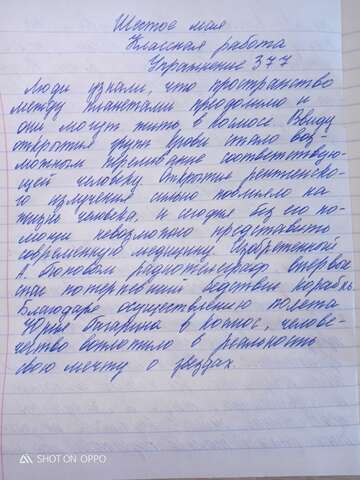 Шестое мая
Классная работа
Упражнение 377
Люди узнали, что пространство
между планетами преодолимо и
они могут жить в космосе. Ввиду
открытия групп крови стало воз-
можным переливание соответствую-
щей человеку. Открытие рентгенско-
го излучения сильно повлияло на
жизнь человека, и сегодня без его по-
мощи невозможно представить
современную медицину. Изобретенный
А. Поповым радиотелеграф впервые
спас потерпевший бедствие корабль.
Благодаря осуществлению полета
Юрия Гагарина в космос, челове-
чество воплотило в реальность
свою мечту о звездах.
SHOT ON OPPO